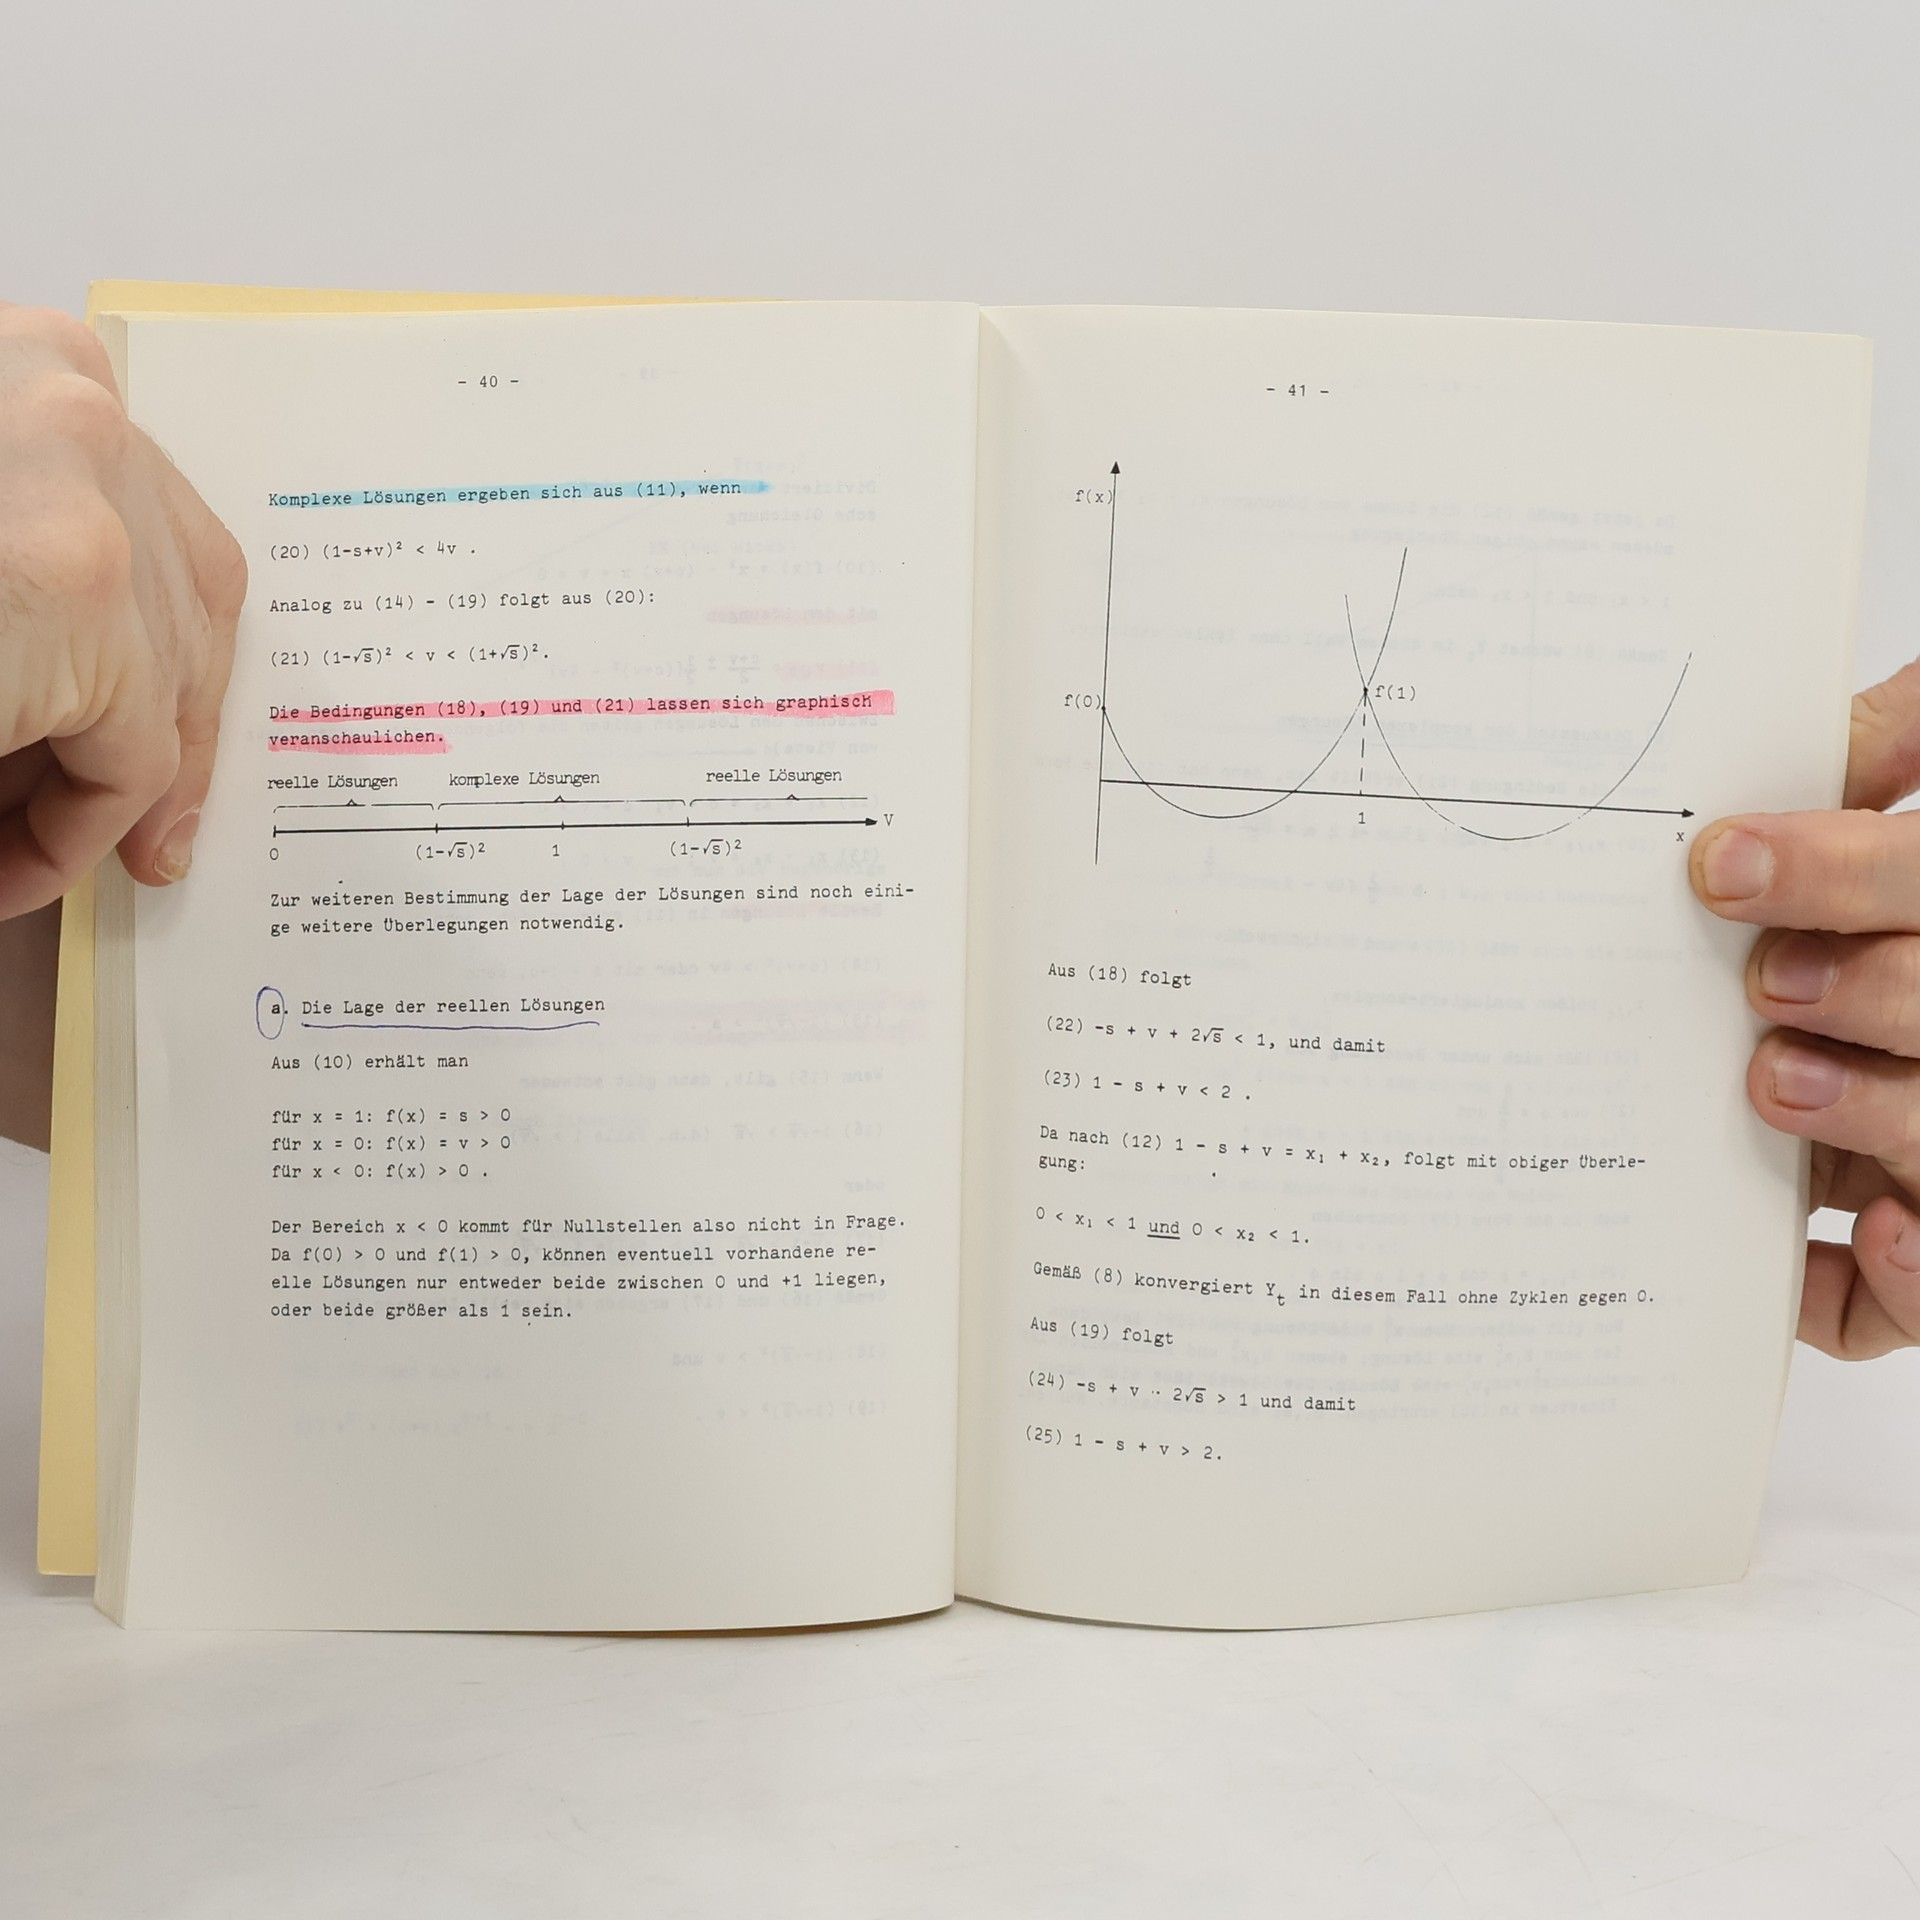 - 40 -
Komplexe Lösungen ergeben sich aus (11), wenn
(20) (1-s+v)² < 4v .
Analog zu (14) - (19) folgt aus (20):
(21) (1-√s)² < v < (1+√s)².
Die Bedingungen (18), (19) und (21) lassen sich graphisch
veranschaulichen.
reelle Lösungen komplexe Lösungen reelle Lösungen
V
0 (1-√s)² 1 (1-√s)²
Zur weiteren Bestimmung der Lage der Lösungen sind noch eini-
ge weitere Überlegungen notwendig.
a. Die Lage der reellen Lösungen
Aus (10) erhält man
für x = 1: f(x) = s > 0
für x = 0: f(x) = v > 0
für x < 0: f(x) > 0 .
Der Bereich x < 0 kommt für Nullstellen also nicht in Frage.
Da f(0) > 0 und f(1) > 0, können eventuell vorhandene re-
elle Lösungen nur entweder beide zwischen 0 und +1 liegen,
oder beide größer als 1 sein.
- 41 -
f(x)
f(0) f(1)
1 x
Aus (18) folgt
(22) -s + v + 2√s < 1, und damit
(23) 1 - s + v < 2 .
Da nach (12) 1 - s + v = x₁ + x₂, folgt mit obiger Überle-
gung:
0 < x₁ < 1 und 0 < x₂ < 1.
Gemäß (8) konvergiert Yₜ in diesem Fall ohne Zyklen gegen 0.
Aus (19) folgt
(24) -s + v - 2√s > 1 und damit
(25) 1 - s + v > 2.